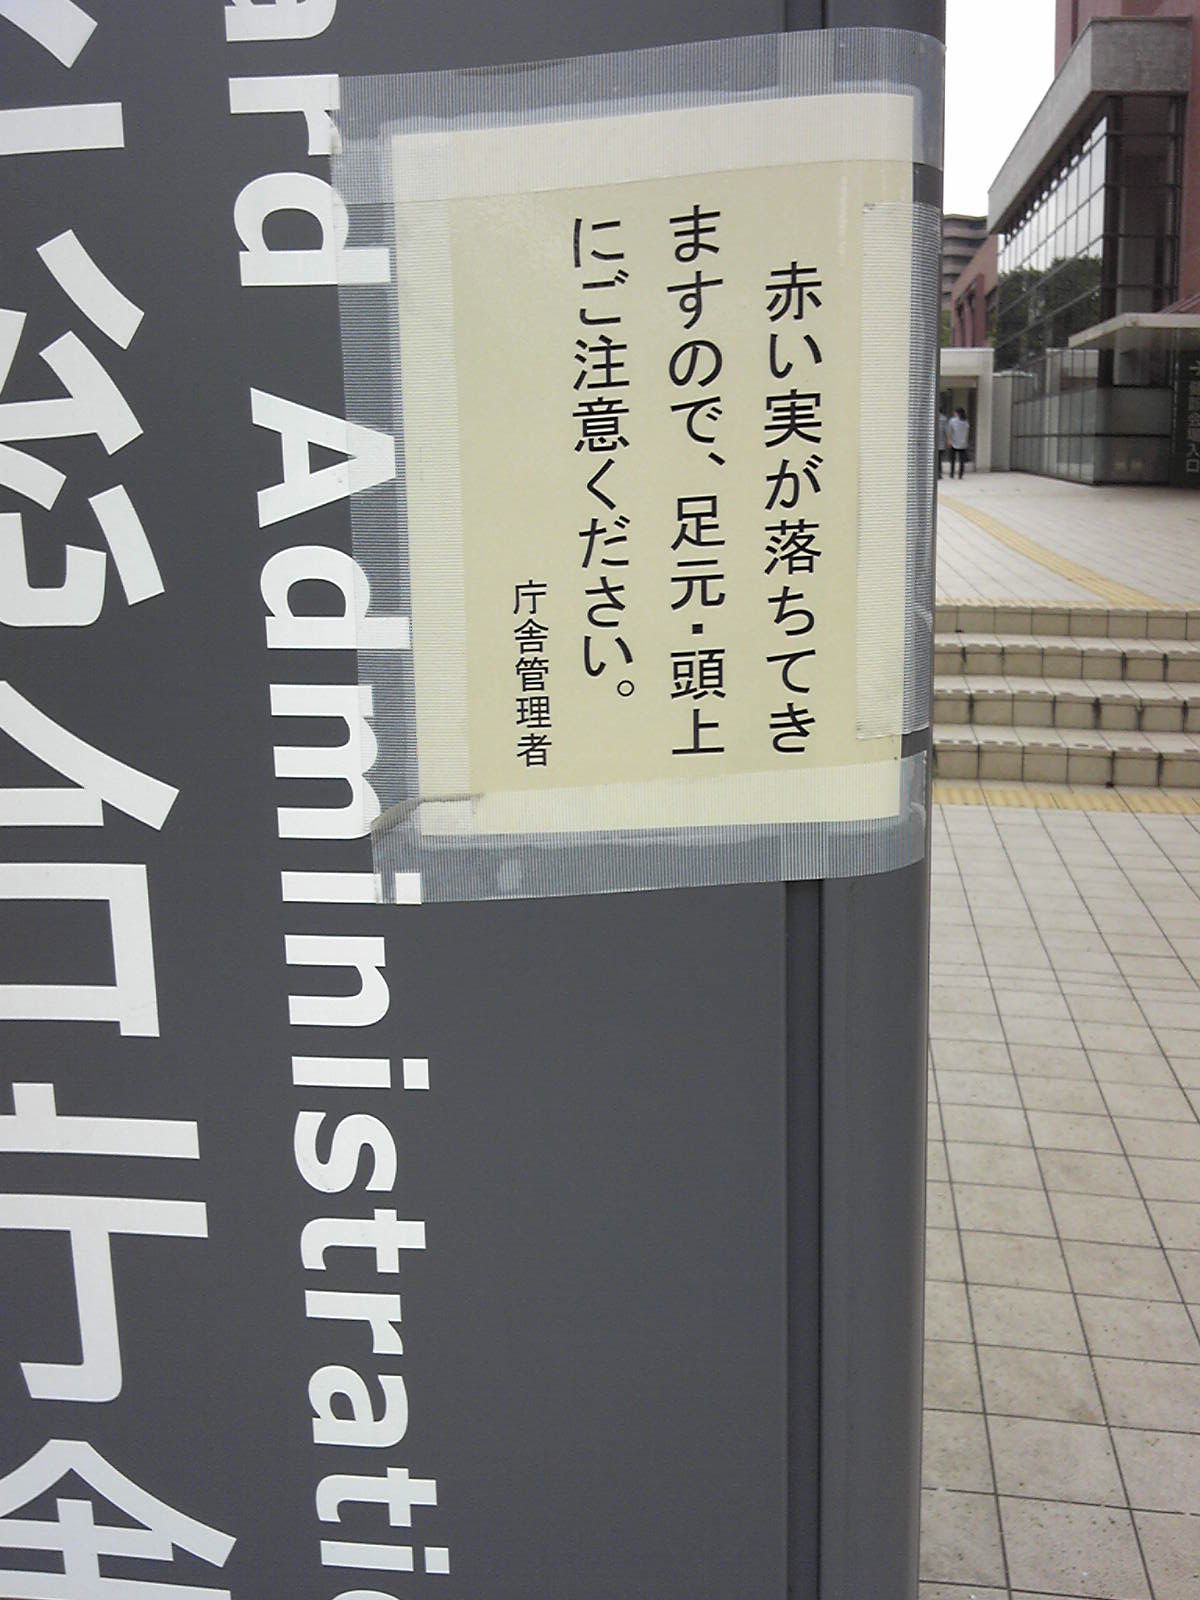 赤い実が落ちてき
ますので、足元・頭上
にご注意ください。
庁舎管理者
ard Administrati